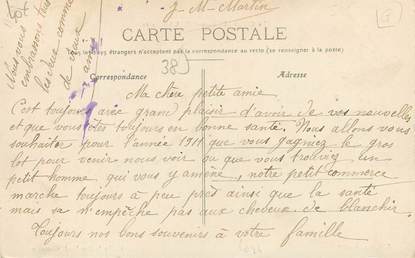 J. M. Martin
CARTE POSTALE
Tous les pays étrangers n'acceptent pas la correspondance au recto (se renseigner à la poste)
Correspondance
Adresse
38
Nous vous
embrassons tous
les deux comme
de vieux
amis
Ma chère petite amie
C'est toujours avec grand plaisir d'avoir de vos nouvelles
et que vous êtes toujours en bonne santé. Nous allons vous
souhaiter pour l'année 1911 que vous gagniez le gros
lot pour venir nous voir ou que vous trouviez un
petit homme qui vous y amène, notre petit commerce
marche toujours à peu près ainsi que la santé
mais sa n'empêche pas aux cheveux de blanchir.
Toujours nos bons souvenirs à votre famille